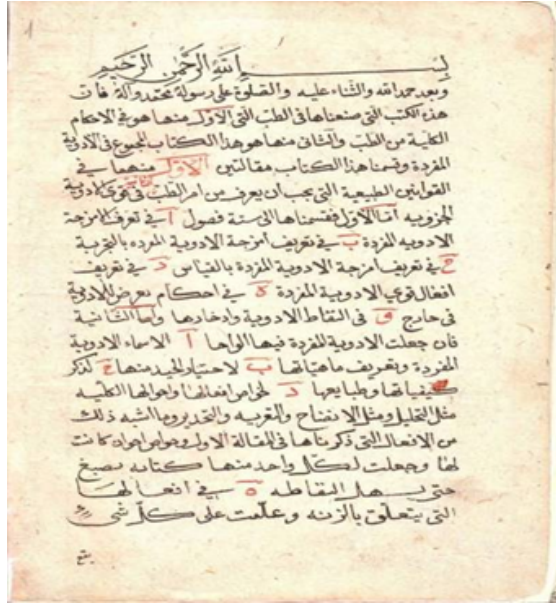 بسم الله الرحمن الرحيم
وبعد حمد الله والثناء عليه والصلوة على رسوله محمد وآله فان
هذه الكتب التى صنعناها فى الطب التى الاول منها هو فى الاحكام
الكلية من الطب والثانى منها هو هذا الكتاب المجموع فى الادوية
المفردة وقسمنا هذا الكتاب مقالتين الاولى منهما فى
القوانين الطبيعية التى يجب ان يعرف من امر الطب فى قوى الادوية
الجزويه اما الاولى فقسمناها الى ستة فصول ا فى تعرف امزجة
الادويه المفردة ب فى تعريف امزجة الادوية المفرده بالتجربة
ج فى تعريف امزجة الادوية المفردة بالقياس د فى تعريف
افعال قوى الادوية المفردة ه فى احكام يعرض للادوية
فى خارج و فى التقاط الادوية وادخارها واما الثانية
فان جعلت الادوية المفردة فيها الواحا ا الاسماء الادوية
المفردة وتعريف ماهياتها ب لاختيار الجيد منها ج لذكر
كيفياتها وطبايعها د لخواص افعالها واحوالها الكليه
مثل التحليل ومثل الانضاج والتغريه والتخدير وما اشبه ذلك
من الافعال التى ذكرناها فى المقالة الاولى وخواص اخر ان كانت
لها وجعلت لكل واحد منها كتابه بصبغ
حتى يسهل التقاطه ه فى افعالها
التى يتعلق بالزنه وعلمت على كل شى